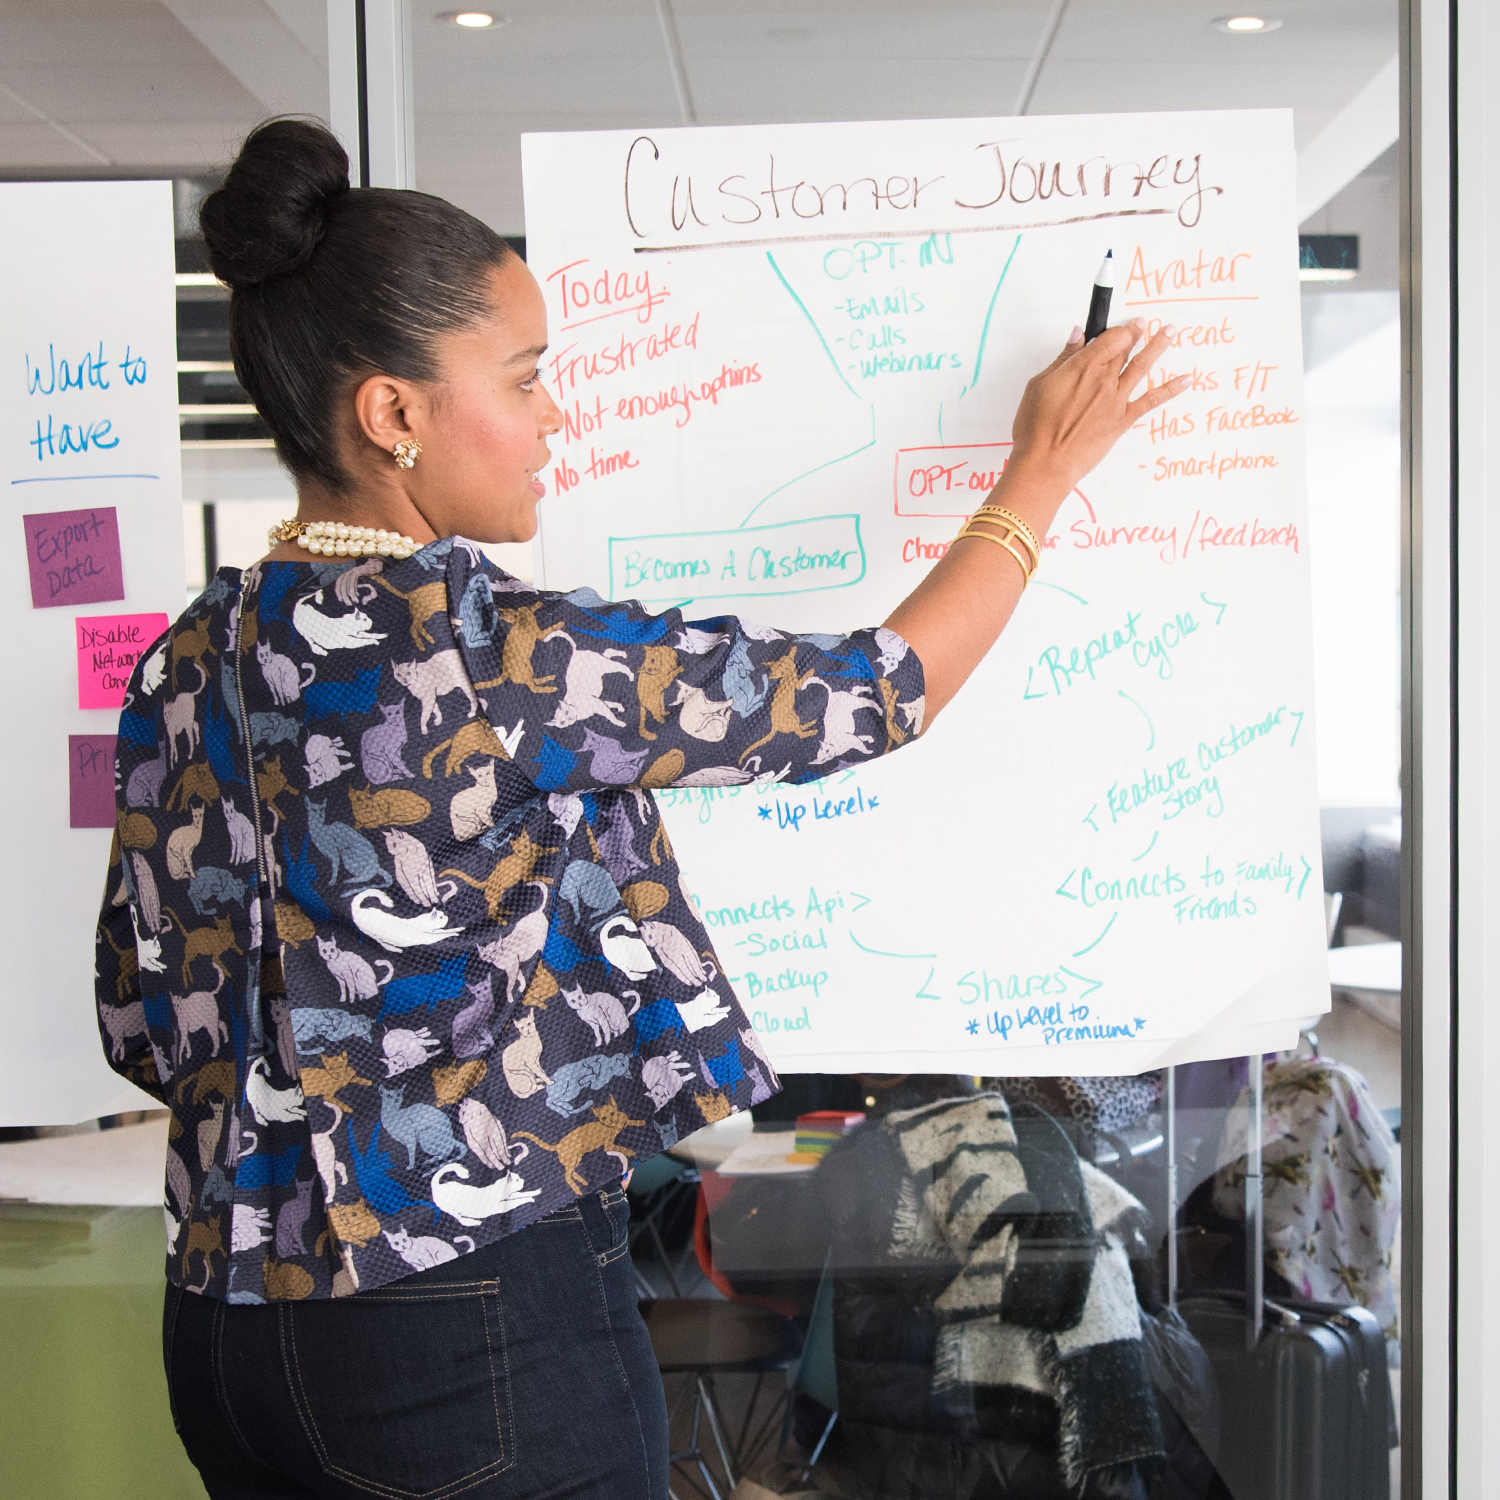 Want to
Have
Export
Data
Disable
Network
Customer Journey
Today:
Frustrated
Not enough options
No time
OPT-IN
-Emails
-Calls
-Webinars
Avatar
Parent
Works F/T
-Has FaceBook
-Smartphone
OPT-out
Survey/feedback
Becomes A Customer
<Repeat
cycle>
<Feature Customer>
Story
<Connects to Family>
Friends
<Shares>
*Up Level to
Premium*
*Up Level*
Connects Api>
-Social
-Backup
Cloud